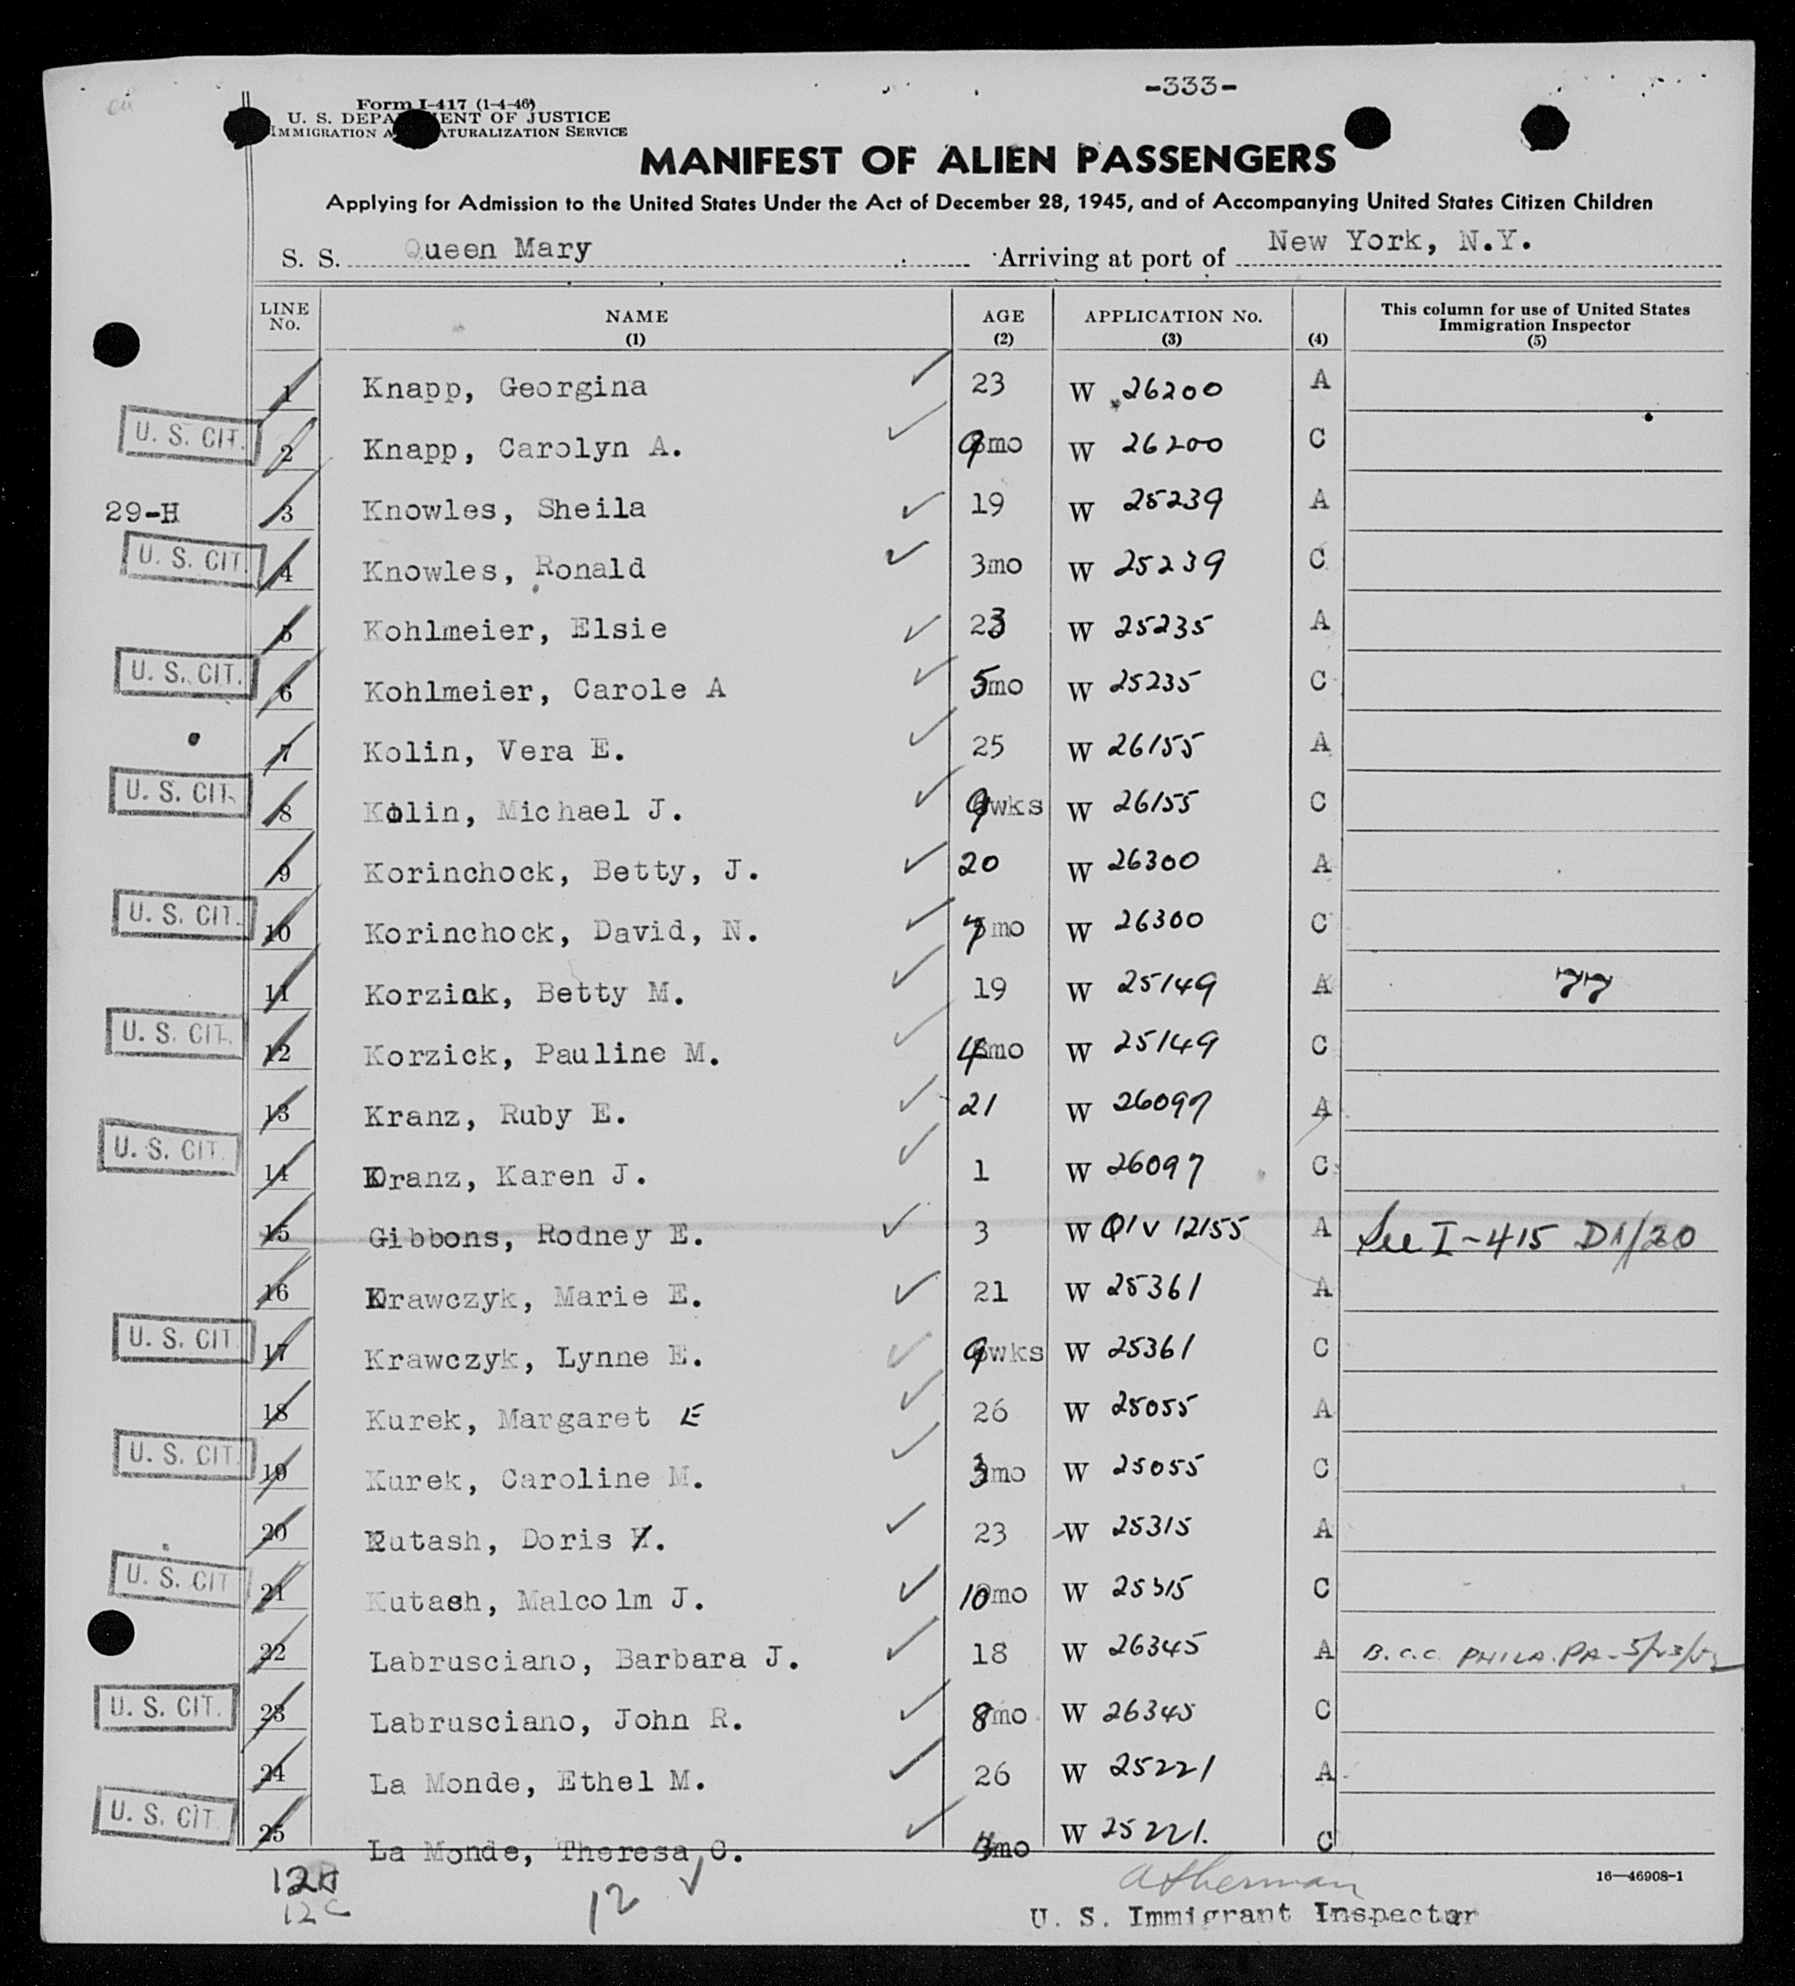 -333-
Form I-417 (1-4-46)
U. S. DEPARTMENT OF JUSTICE
IMMIGRATION AND NATURALIZATION SERVICE
MANIFEST OF ALIEN PASSENGERS
Applying for Admission to the United States Under the Act of December 28, 1945, and of Accompanying United States Citizen Children
S. S. Queen Mary Arriving at port of New York, N.Y.
LINE No. NAME (1) AGE (2) APPLICATION No. (3) (4) This column for use of United States Immigration Inspector (5)
1 Knapp, Georgina 23 W 26200 A
U. S. CIT. 2 Knapp, Carolyn A. 9mo W 26200 C
29-H 3 Knowles, Sheila 19 W 25239 A
U. S. CIT. 4 Knowles, Ronald 3mo W 25239 C
5 Kohlmeier, Elsie 23 W 25235 A
U. S. CIT. 6 Kohlmeier, Carole A 5mo W 25235 C
7 Kolin, Vera E. 25 W 26155 A
U. S. CIT. 8 Kolin, Michael J. 9wks W 26155 C
9 Korinchock, Betty, J. 20 W 26300 A
U. S. CIT. 10 Korinchock, David, N. 7mo W 26300 C
11 Korzick, Betty M. 19 W 25149 A 77
U. S. CIT. 12 Korzick, Pauline M. 4mo W 25149 C
13 Kranz, Ruby E. 21 W 26097 A
U. S. CIT. 14 Kranz, Karen J. 1 W 26097 C
15 Gibbons, Rodney E. 3 W QIV 12155 A See I-415 D1/20
16 Krawczyk, Marie E. 21 W 25361 A
U. S. CIT. 17 Krawczyk, Lynne E. 9wks W 25361 C
18 Kurek, Margaret E 26 W 25055 A
U. S. CIT. 19 Kurek, Caroline M. 3mo W 25055 C
20 Kutash, Doris 23 W 25315 A
U. S. CIT 21 Kutash, Malcolm J. 10mo W 25315 C
22 Labrusciano, Barbara J. 18 W 26345 A B.C.C. PHILA. PA-
U. S. CIT. 23 Labrusciano, John R. 8mo W 26345 C
24 La Monde, Ethel M. 26 W 25221 A
U. S. CIT 25 La Monde, Theresa C. mo W 25221. C
12A
12C
12
16—46908-1
U. S. Immigrant Inspector